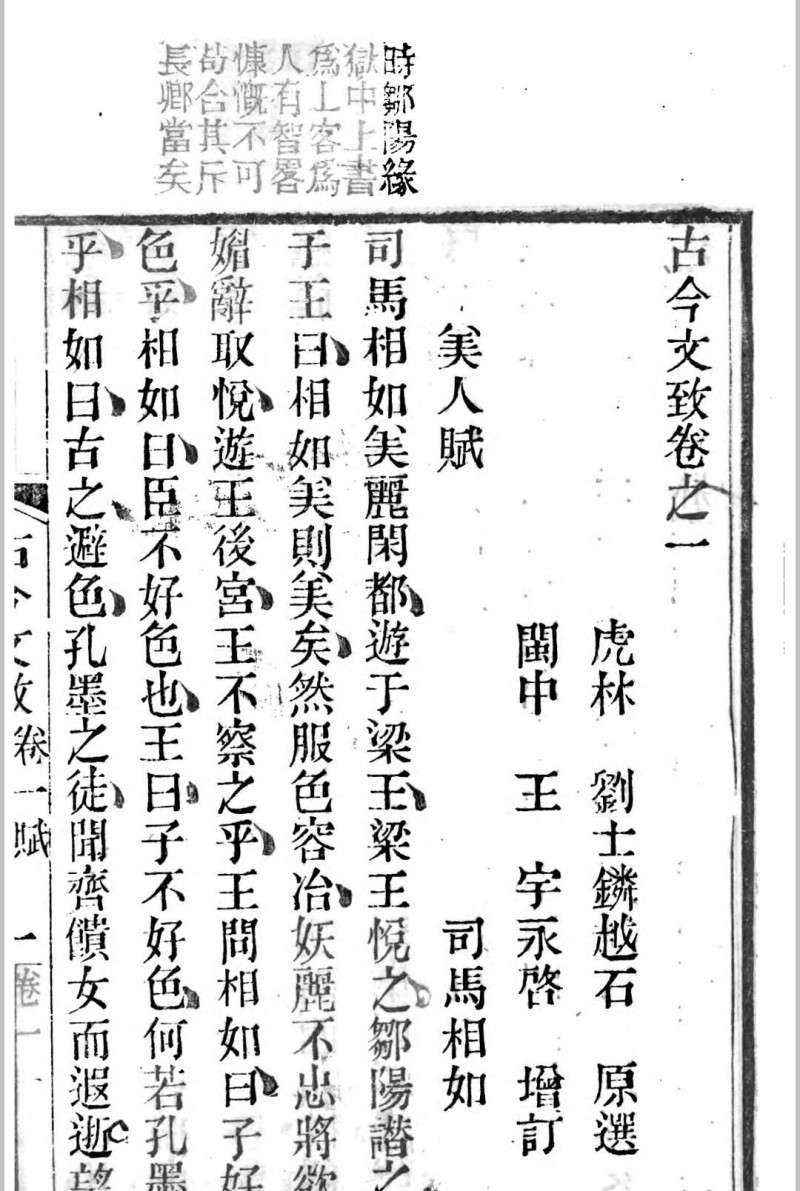 時鄒陽緣
獄中上書
爲上客爲
人有智畧
慷慨不可
苟合其斥
長卿當矣
古今文致卷之一
虎林　劉士鏻越石　原選
閩中　王　宇永啓　增訂
美人賦
司馬相如
司馬相如美麗閑都遊于梁王梁王悅之鄒陽譖之
于王曰相如美則美矣然服色容冶妖麗不忠將欲
媚辭取悅遊王後宮王不察之乎王問相如曰子好
色乎相如曰臣不好色也王曰子不好色何若孔墨
乎相如曰古之避色孔墨之徒聞齊饋女而遐逝望
古今文致卷一賦　一
卷一